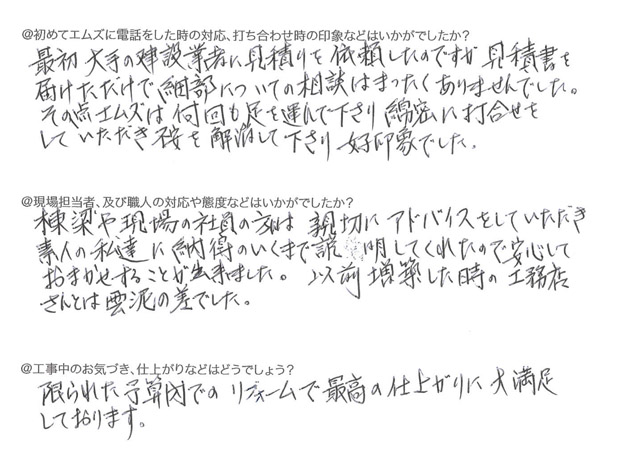 @初めてエムズに電話をした時の対応、打ち合わせ時の印象などはいかがでしたか?
最初 大手の建設業者に見積りを依頼したのですが 見積書を
届けただけで細部についての相談はまったくありませんでした。
その点エムズは何回も足を運んで下さり綿密に打合せを
していただき不安を解消して下さり 好印象でした。
@現場担当者、及び職人の対応や態度などはいかがでしたか?
棟梁や現場の社員の方は 親切に アドバイスをしていただき
素人の私達に納得のいくまで説明してくれたので安心して
おまかせすることが出来ました。 以前増築した時の工務店
さんとは雲泥の差でした。
@工事中のお気づき、仕上がりなどはどうでしょう?
限られた予算内でのリフォームで最高の仕上がりに大満足
しております。